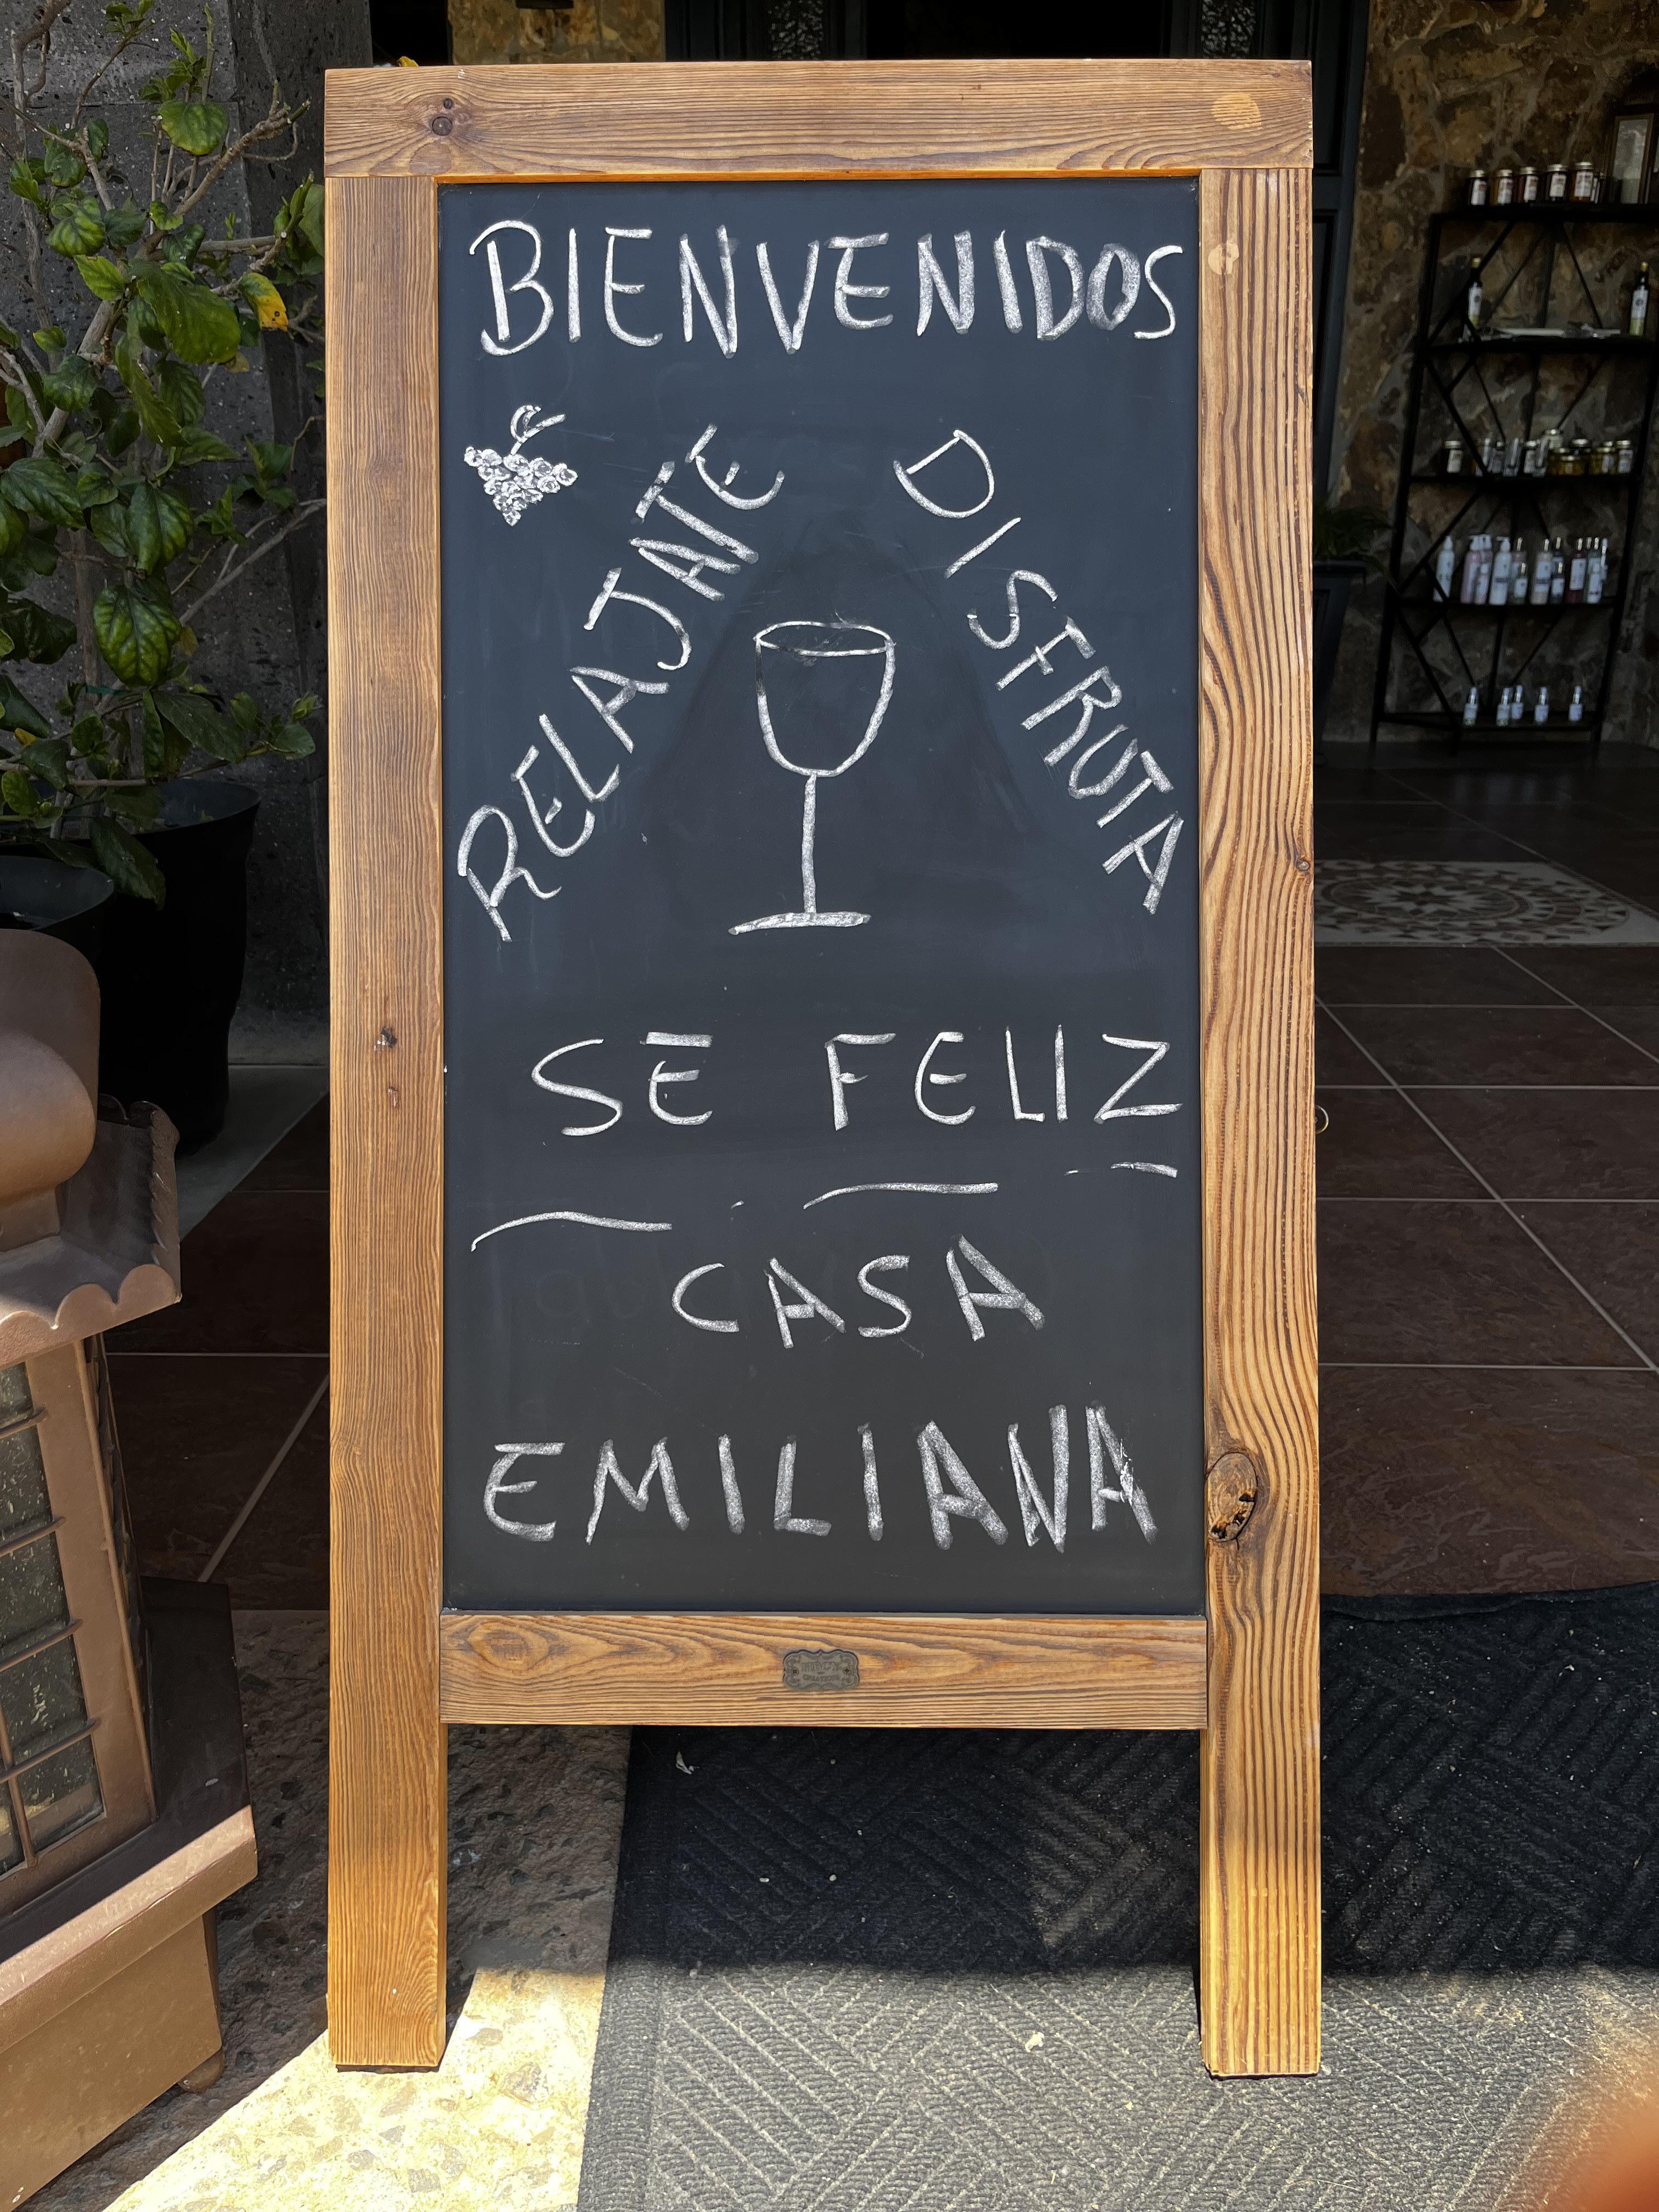 BIENVENIDOS
RELAJATE
DISFRUTA
SE FELIZ
CASA
EMILIANA